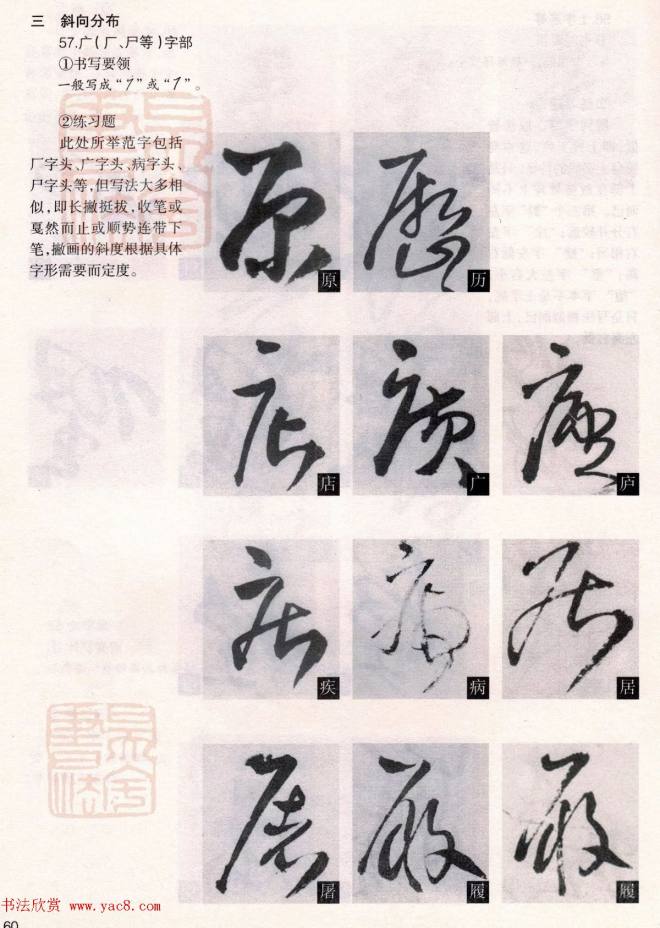 三 斜向分布
57.广(厂、尸等)字部
①书写要领
一般写成“㇇”或“㇇”。
②练习题
此处所举范字包括
厂字头、广字头、病字头、
尸字头等,但写法大多相
似,即长撇挺拔,收笔或
戛然而止或顺势连带下
笔,撇画的斜度根据具体
字形需要而定度。
原 历
店 广 庐
疾 病 居
屠 履 履
书法欣赏 www.yac8.com
60